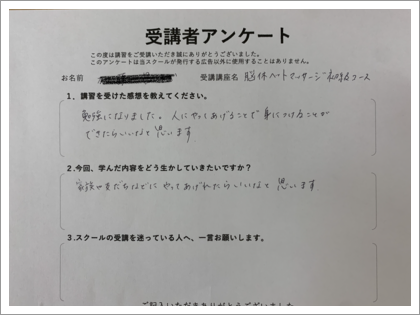 受講者アンケート
この度は講習をご受講いただき誠にありがとうございました。
このアンケートは当スクールが発行する広告以外に使用することはありません。
お名前 受講講座名 脳体ヘッドマッサージ初級コース
1、講習を受けた感想を教えてください。
勉強になりました。人にやってあげることで身につけることが
できたらいいなと思います
2.今回、学んだ内容をどう生かしていきたいですか?
家族や友だちなどにやってあげれたらいいなと思います
3.スクールの受講を迷っている人へ、一言お願いします。
ご記入いただきありがとうございました